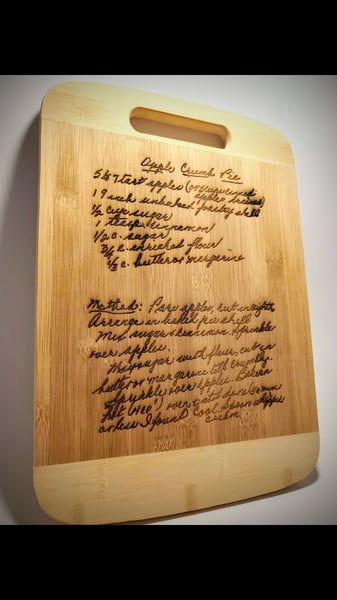 Apple Crumb Pie
5 to 7 tart apples (or
apple
1 9 inch unbaked pastry shell
1/2 cup sugar
1 teasp. cinnamon
1/2 c. sugar
3/4 c. enriched flour
1/3 c. butter or margarine
Method: Pare apples, cut in eighths
Arrange in pie shell
Mix sugar & cinnamon sprinkle
over apples
Mix sugar with flour, cut in
butter or margarine till crumbly.
Sprinkle over apples. Bake in
hot (400°) oven
or less I found Cool. Spoon whipped
cream